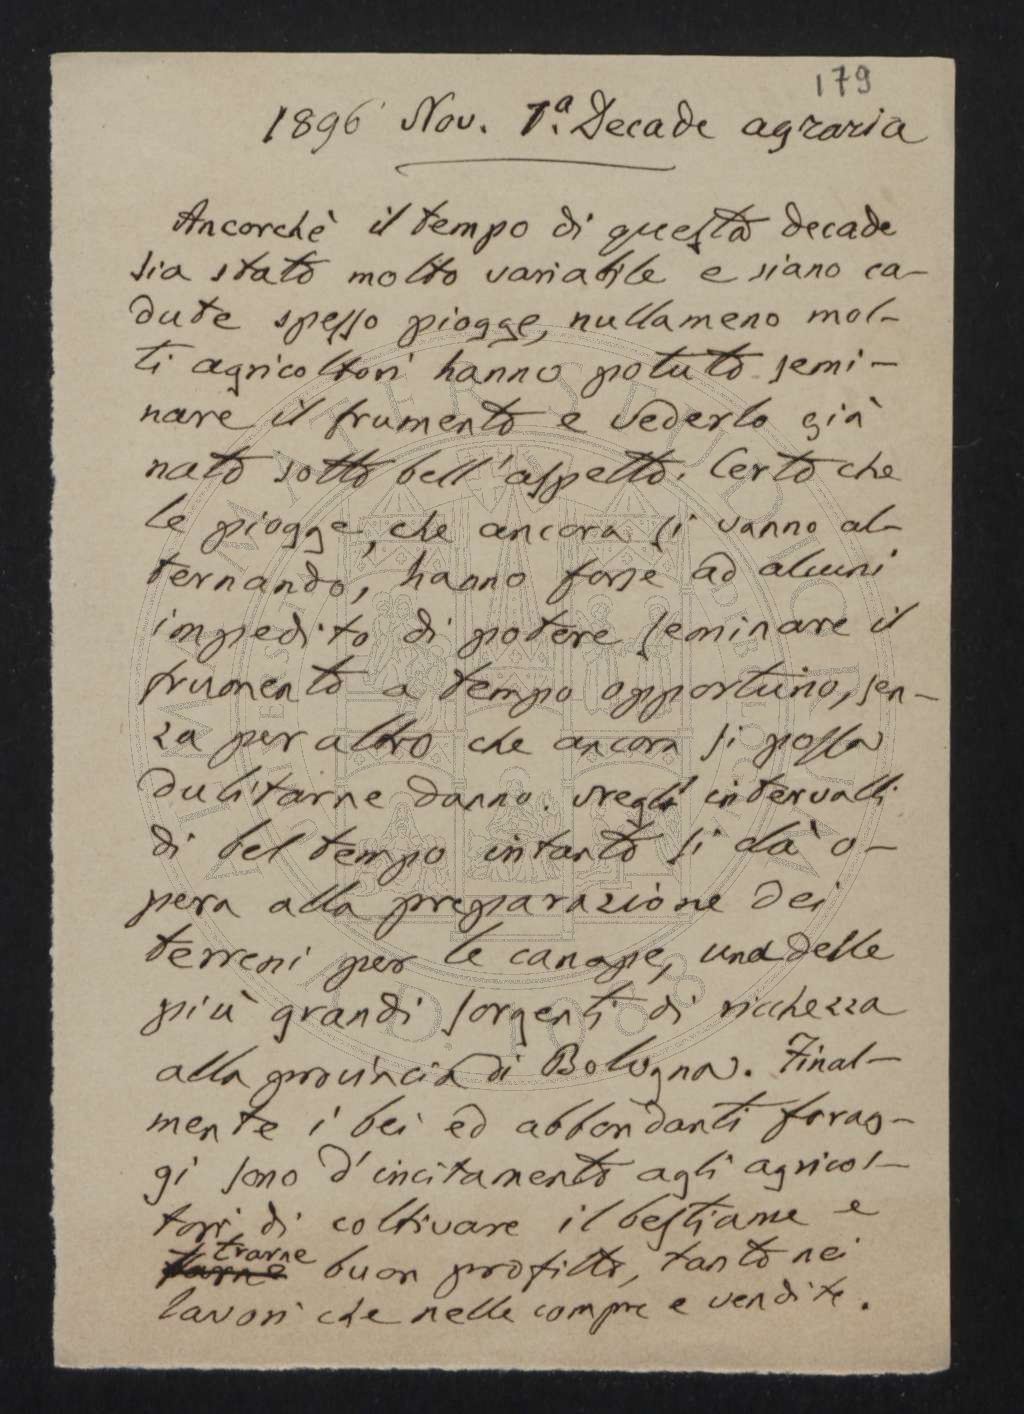 179
1896 Nov. 1.ª Decade agraria
Ancorchè il tempo di questa decade
sia stato molto variabile e siano ca-
dute spesso piogge, nullameno mol-
ti agricoltori hanno potuto semi-
nare il frumento e vederlo già
nato sotto bell'aspetto. Certo che
le piogge, che ancora si vanno al-
ternando, hanno forse ad alcuni
impedito di potere seminare il
frumento a tempo opportuno, sen-
za per altro che ancora si possa
dubitarne danno. Negli intervalli
di bel tempo intanto si dà o-
pera alla preparazione dei
terreni per le canape, una delle
più grandi sorgenti di ricchezza
alla provincia di Bologna. Final-
mente i bei ed abbondanti forag-
gi sono d'incitamento agli agricol-
tori di coltivare il bestiame e
trarne
farne buon profitto, tanto nei
lavori che nelle compre e vendite.